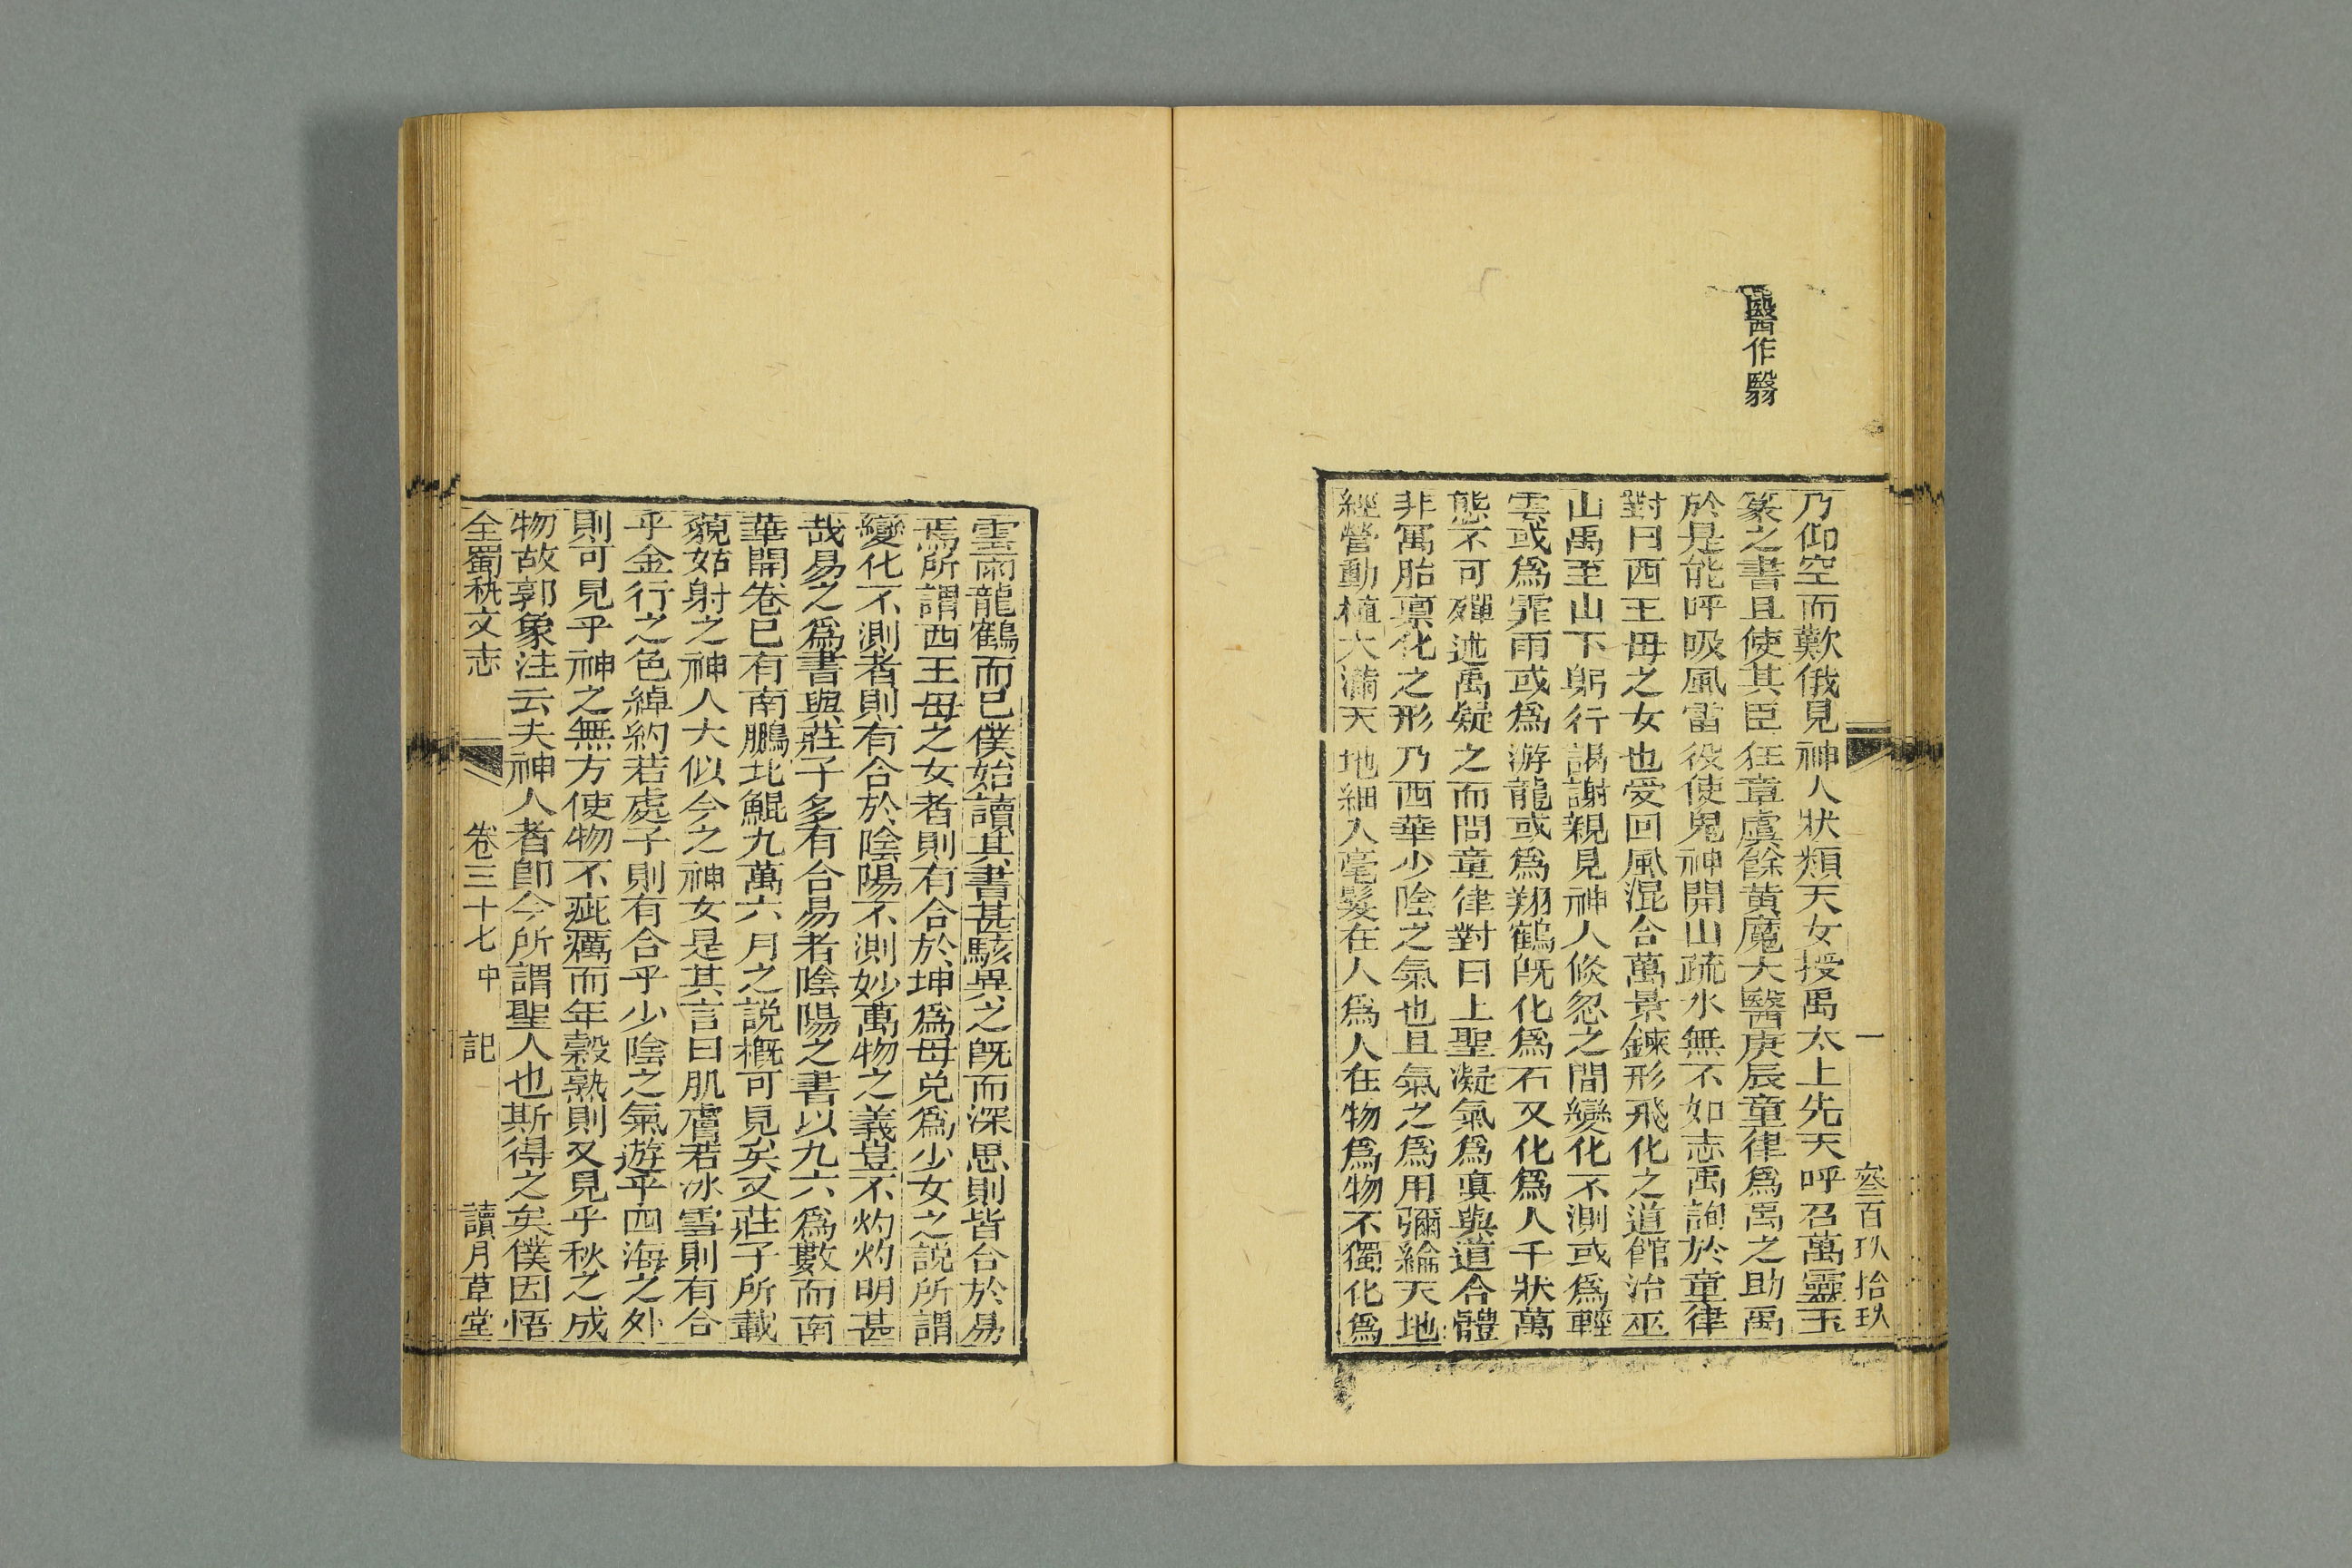 醫作翳
一 叄百玖拾玖
乃仰空而歎俄見神人狀類天女授禹太上先天呼召萬靈玉
篆之書且使其臣狂章虞餘黄魔大醫庚辰童律爲禹之助禹
於是能呼吸風雷役使鬼神開山疏水無不如志禹詢於童律
對曰西王母之女也受回風混合萬景鍊形飛化之道館治巫
山禹至山下躬行謁謝親見神人倐忽之間變化不測或爲輕
雲或爲霏雨或爲游龍或爲翔鶴旣化爲石又化爲人千狀萬
態不可殫述禹疑之而問童律對曰上聖凝氣爲眞與道合體
非寓胎禀化之形乃西華少陰之氣也且氣之爲用彌綸天地
經營動植大滿天地細入毫髮在人爲人在物爲物不獨化爲
雲雨龍鶴而已僕始讀其書甚駭異之旣而深思則皆合於易
焉所謂西王母之女者則有合於坤爲母兑爲少女之説所謂
變化不測者則有合於陰陽不測妙萬物之義豈不灼灼明甚
哉易之爲書與莊子多有合易者陰陽之書以九六爲數而南
華開卷已有南鵬北鯤九萬六月之説槪可見矣又莊子所載
藐姑射之神人大似今之神女是其言曰肌膚若冰雪則有合
乎金行之色綽約若處子則有合乎少陰之氣遊乎四海之外
則可見乎神之無方使物不疵癘而年穀熟則又見乎秋之成
物故郭象注云夫神人者卽今所謂聖人也斯得之矣僕因悟
全蜀秇文志 卷三十七中 記 讀月草堂